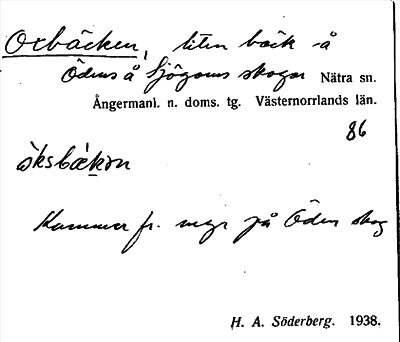 Oxbäcken, liten bäck å
Ödens å Sjögoms skogar Nätra sn.
Ångermanl. n. doms. tg. Västernorrlands län.
86
òksbæ̀kən
Kommer fr. myr på Öden skog
H. A. Söderberg. 1938.